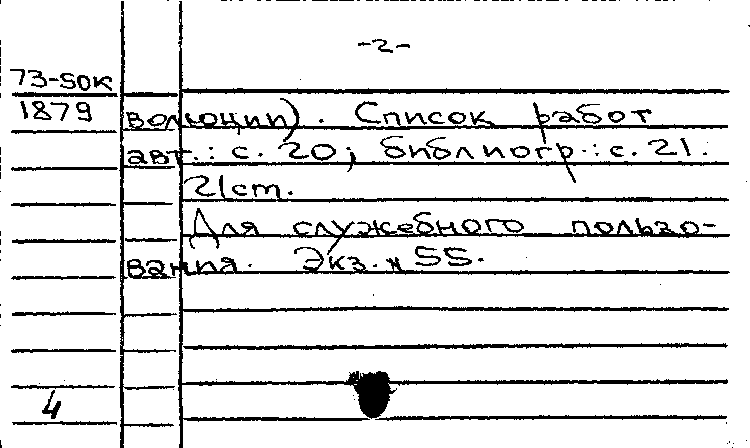 -2-
73-50к
1879 волюции). Список работ
авт.: с. 20; библиогр.: с. 21.
21 cm.
Для служебного пользо-
вания. Экз. № 55.
4